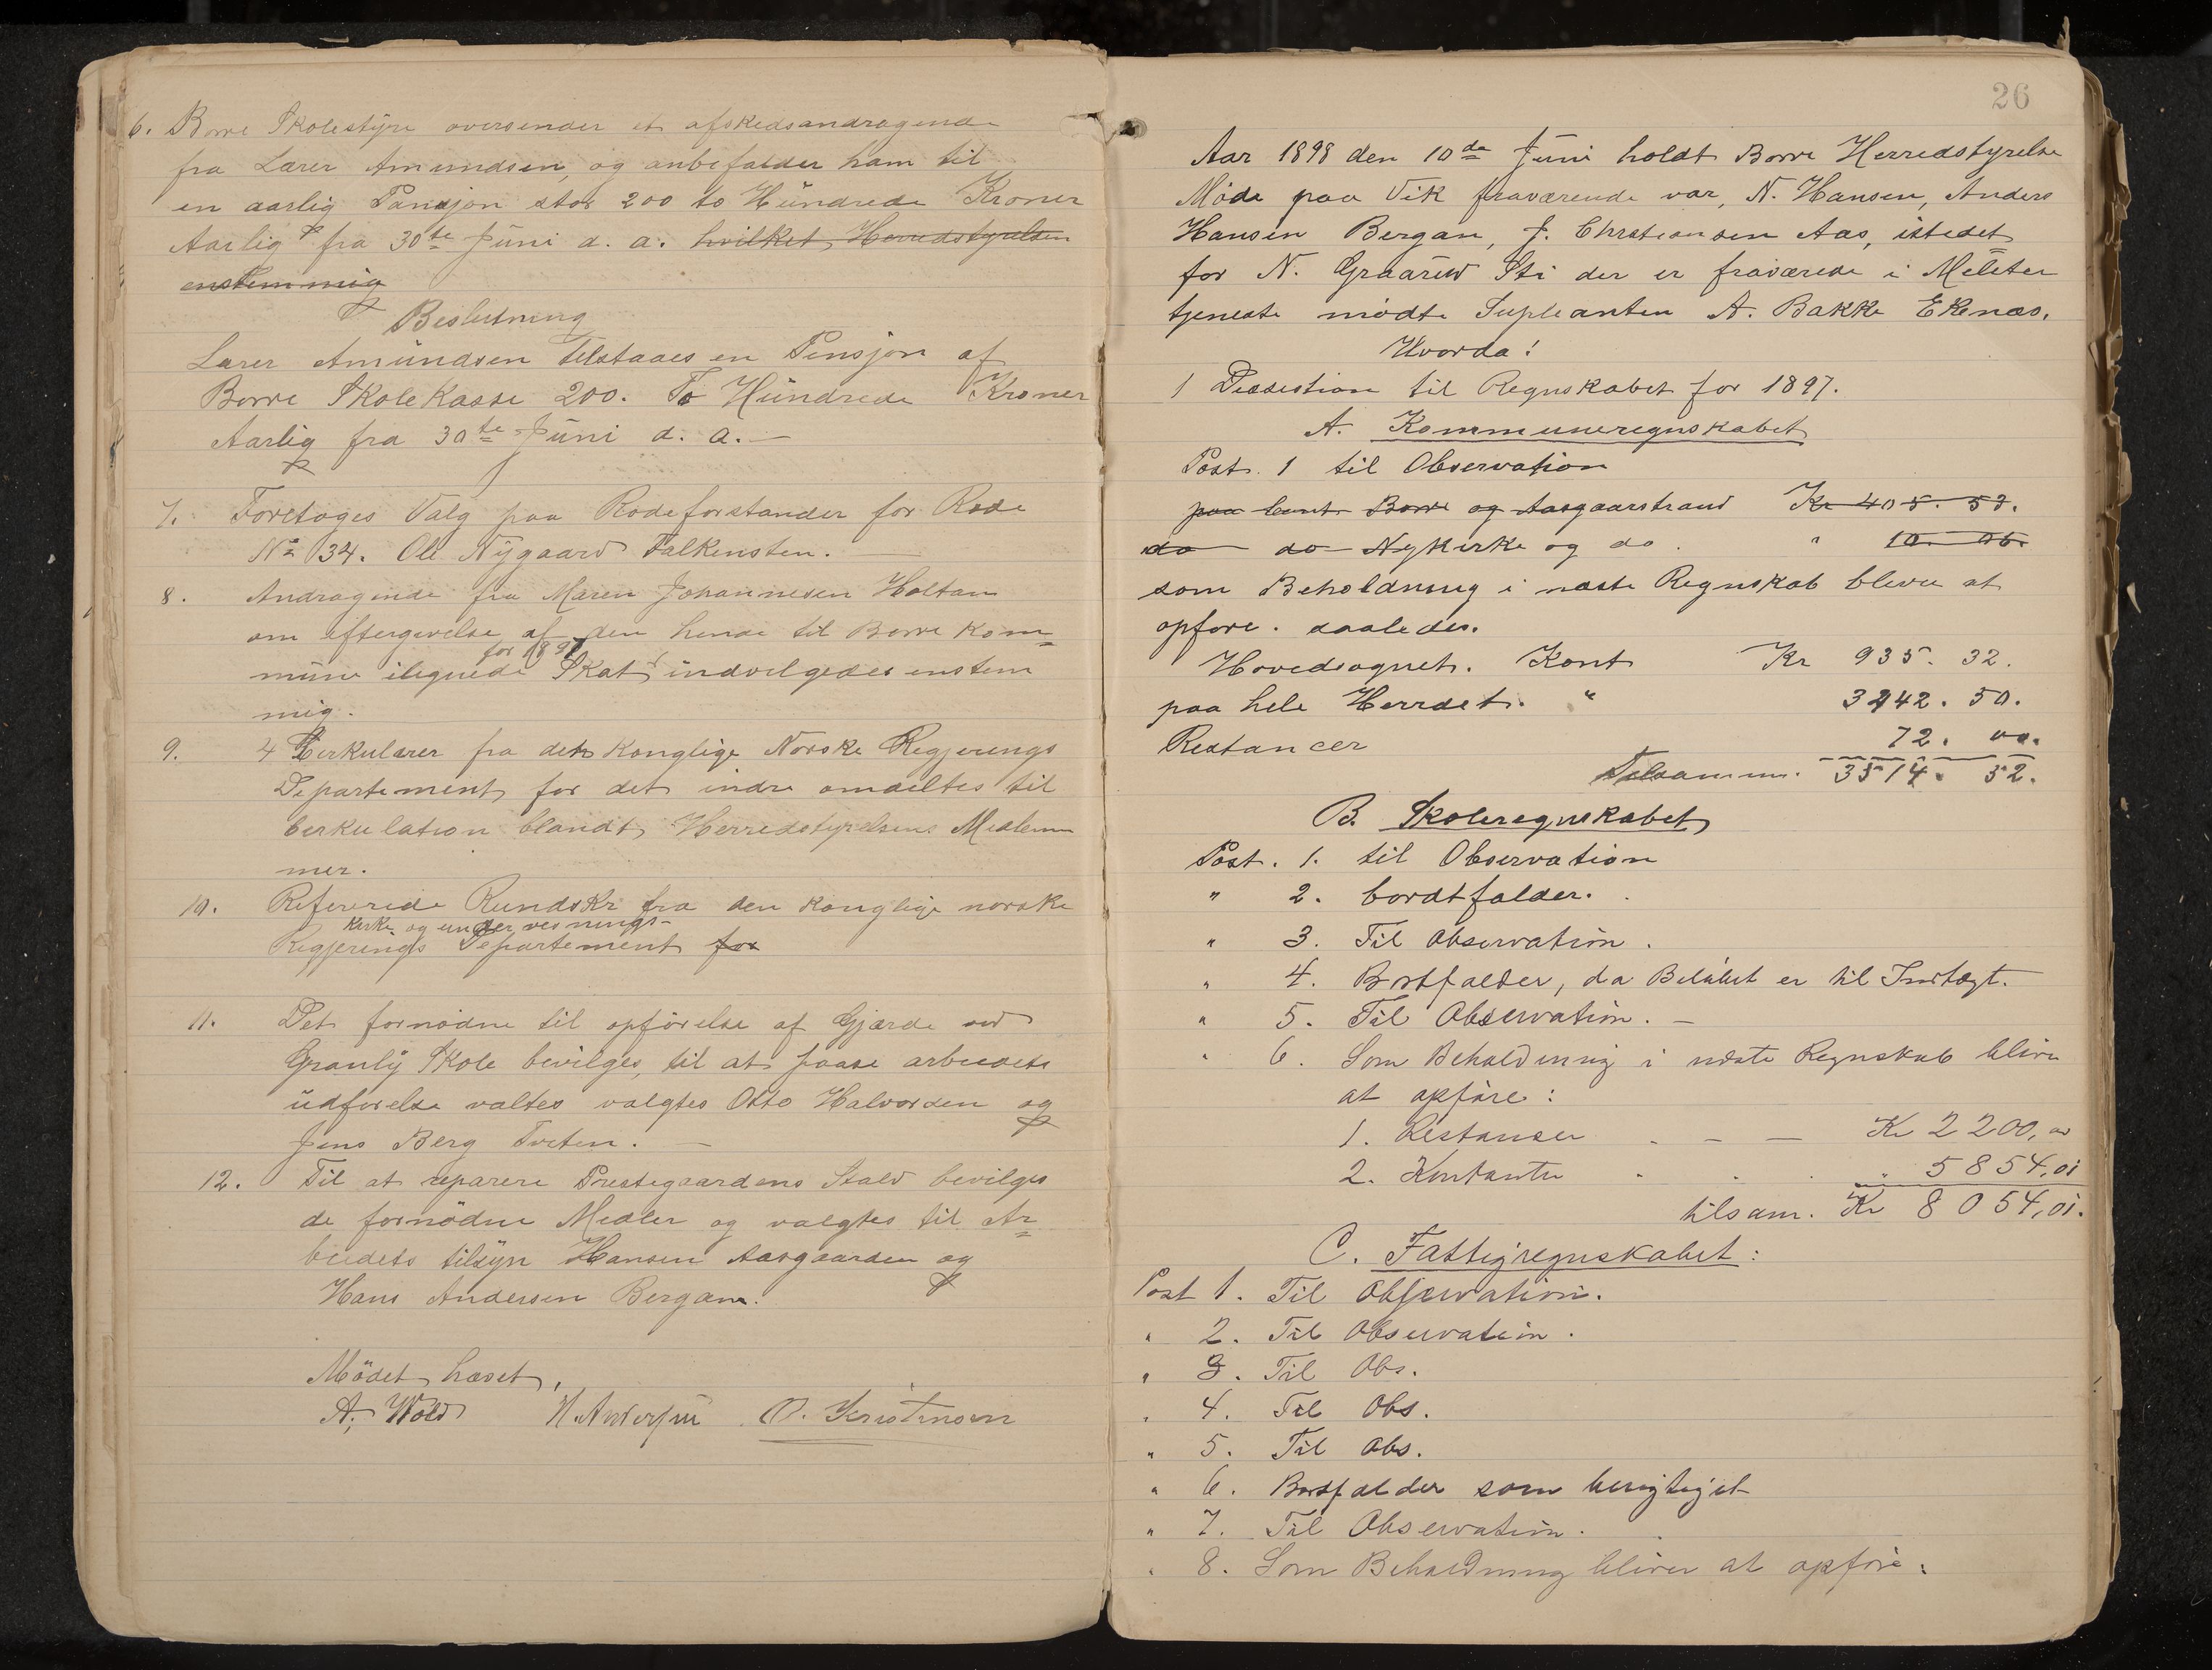 6. Borre Skolestyre oversender et afskedsandragende
fra Lærer Amundsen, og anbefalder ham til
en aarlig Pansjon stor 200 to Hundrede Kroner
Aarlig fra 30te Juni d. a. hvilket Herredstyrelsen
enstemmig
Beslutning
Lærer Amundsen tilstaaes en Pensjon af
Borre Skolekasse 200. To Hundrede Kroner
Aarlig fra 30te Juni d. a. —
7. Foretoges Valg paa Rodeforstander for Rode
No 34. Ole Nygaard Falkensten.
8. Andragende fra Maren Johannesen Holtan
om eftergivelse af den hende til Borre Kom=
for 1897
mune ilignede Skat indvilgedes enstem
mig.
9. 4 Cirkulærer fra det Konglige Norske Regjerings
Departement for det indre omdeltes til
Cerkulation blandt Herredstyrelsens Medlem
mer.
10. Refererede Rundskr fra den konglige norske
Kirke og undervisnings-
Regjerings Departement for
11. Det fornødne til opførelse af Gjærde ved
Granly Skole bevilges, til at paase arbeidets
udførelse valtes valgtes Otto Halvorsen og
Jens Berg Tveten. —
12. Til at reparere Prestegaardens Stald bevilges
de fornødne Medler og valgtes til Ar=
beidets tilsyn Hansen Aasgaarden og
Hans Andersen Bergan.
Mödet hævet,
A. Wold H. Andersen O. Kristensen
26
Aar 1898 den 10de Juni holdt Borre Herredstyrelse
Møde paa Vik fraværende var, N. Hansen, Anders
Hansen Bergan, J. Christiansen Aas, istedet
for N. Graarud Sti der er fraværede i Meleter
tjeneste mødte Supleanten A. Bakke Ekenæs.
Hvorda!
1 Desestion til Regnskabet for 1897.
A. Kommuneregnskabet
Post. 1 til Observation
paa Borre og Aasgaarstrand Kr 405. 53.
do do Nykirke og do. " 10. 06.
som Beholdning i næste Regnskab bleve at
opføre. saaledes.
Hovedsognet. Kont Kr 935. 32.
paa hele Herrdet. " 3242. 50.
Restancer 72. 00.
Tilsamm. 3514. 52.
B. Skoleregnskabet
Post. 1. til Observation
" 2. bordtfalder.
" 3. Til Observation.
" 4. Bortfalder, da Beløbet er til Indtægt.
" 5. Til Observation. —
" 6. Som Beholdning i næste Regnskab blive
at opføre:
1. Restanser - - — Kr 2200,00
2. Kontanter " 5854,01
tilsam. Kr 8054,01.
C. Fattigregnskabet:
Post 1. Til Observation.
" 2. Til Observation.
" 3. Til Obs.
" 4. Til Obs.
" 5. Til Obs.
" 6. Bortfalder som berigtiget
" 7. Til Observation.
" 8. Som Beholdning bliver at opføre: